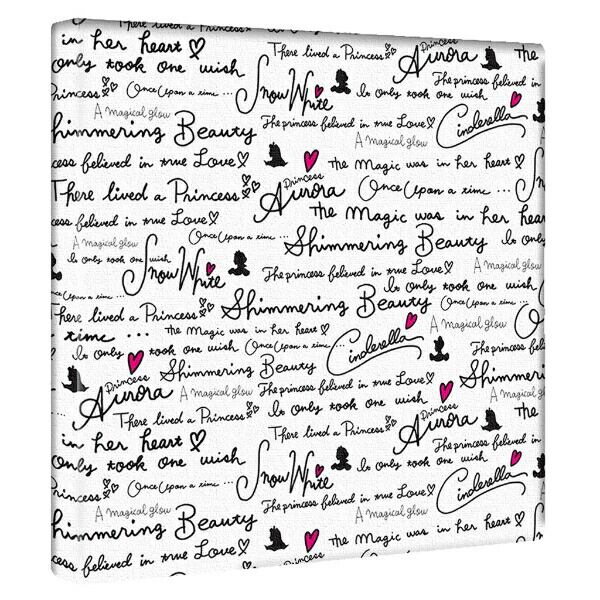 in her heart
There lived a Princess
Princess
Aurora
only took one wish
Snow White
The princess believed in
Princess
Once Upon a time ...
Is Only took one wish
A magical glow
The princess believed in true Love
Cinderella
Shimmering Beauty
A magical glow
believed in true Love
the Magic was in her heart
There lived a Princess
Princess
Aurora
Once Upon a time ...
the Magic was in her hear
believed in true Love
Once Upon a time ...
Shimmering Beauty
Is Only
A magical glow
Snow White
A magical glow
Is only took one wish
The princess believed in true Love
Is only took one wish
Once Upon a time ...
Shimmering Beauty
Once Upon a time ...
There lived a Princess
A magical glow
time ...
the Magic was in her heart
Cinderella
Is Only took one wish
Once Upon a time ...
Princess
Shimmering Beauty
Is Only took one wish
Shimmering
Aurora
A magical glow
The princess believed in true Love
Princess
There lived a Princess
Is Only took one wish
A magical glow
the
Aurora
in her heart
There lived a Princess
The princess believed in
only took one wish
Snow White
Is Only took one wish
Princess
Once Upon a time ...
The princess believed in true Love
Cinderella
A magical glow
A magical glow
Shimmering Beauty
the Magic was in her heart
believed in true Love
There lived a Princess
Princess
Once Upon a time